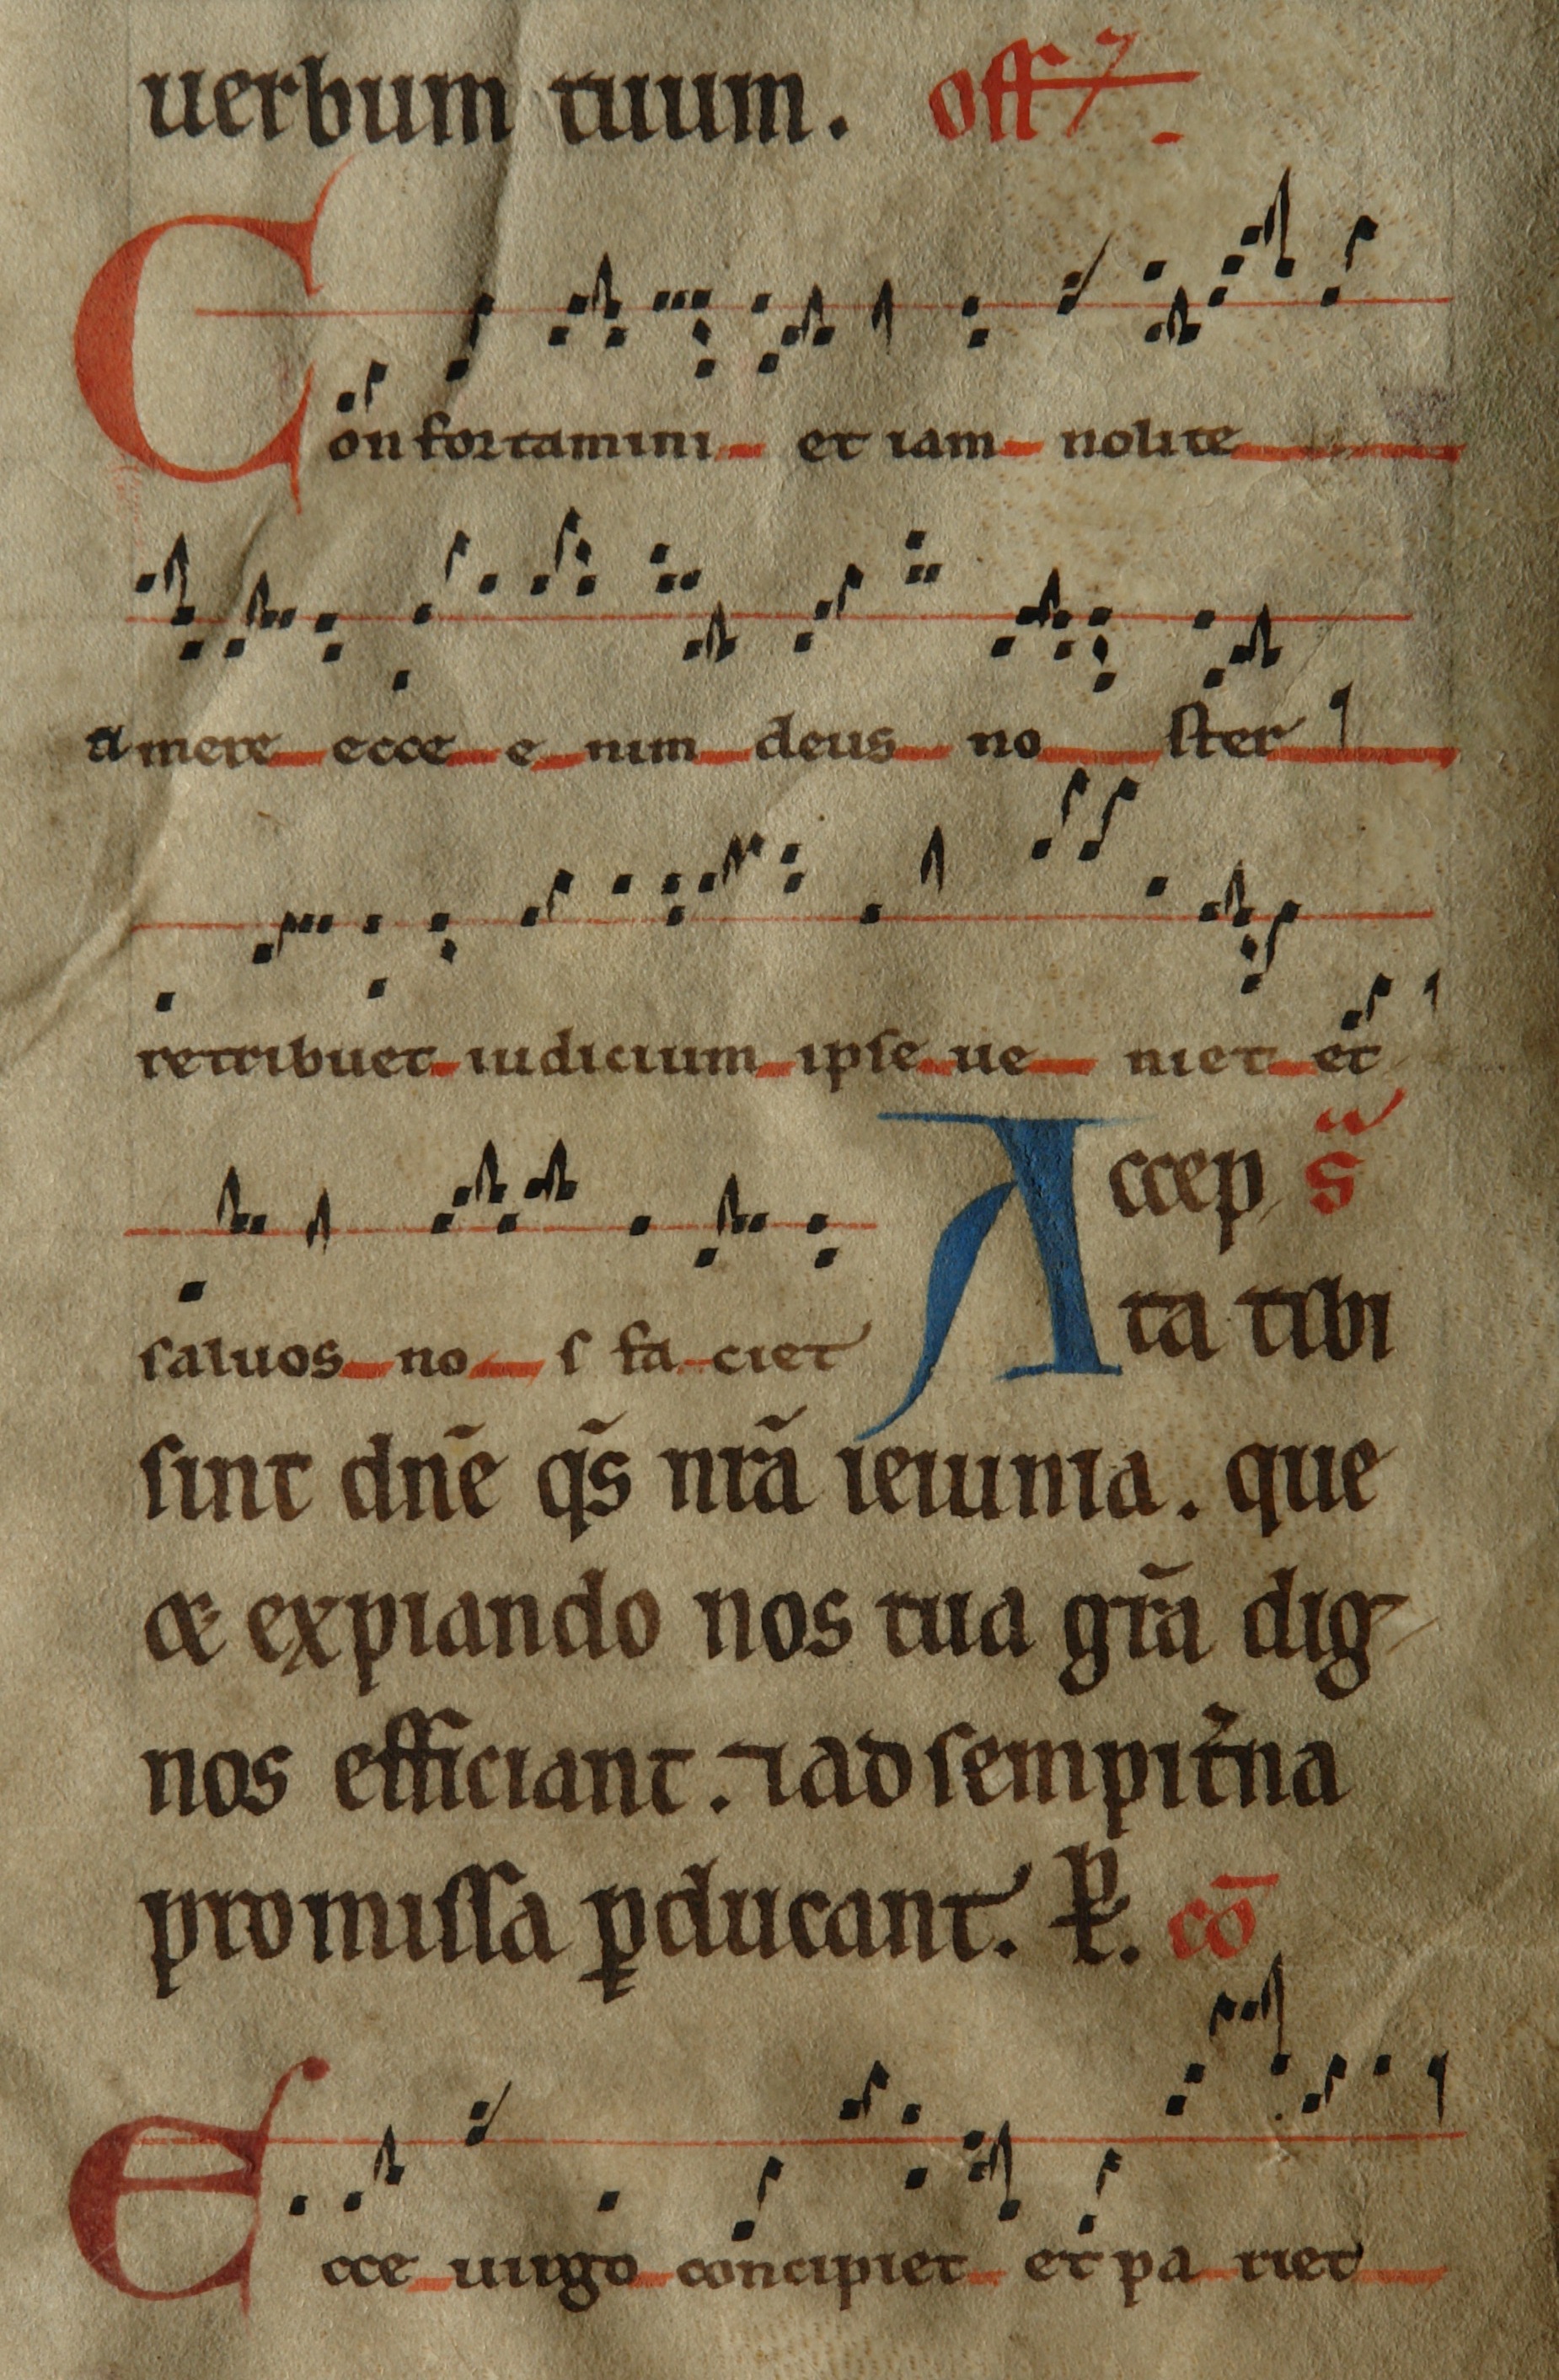 uerbum tuum. off
Confortamini et iam nolite
timere ecce enim deus noster
retribuet iudicium ipse ueniet et
Accep s̄
saluos nos faciet
ta tibi
sint dnē qs̄ nrā ieiunia. que
et expiando nos tua grā dig
nos efficiant. ⁊ ad sempit̄na
promissa ꝑducant. P. cō
Ecce uirgo concipiet et pariet